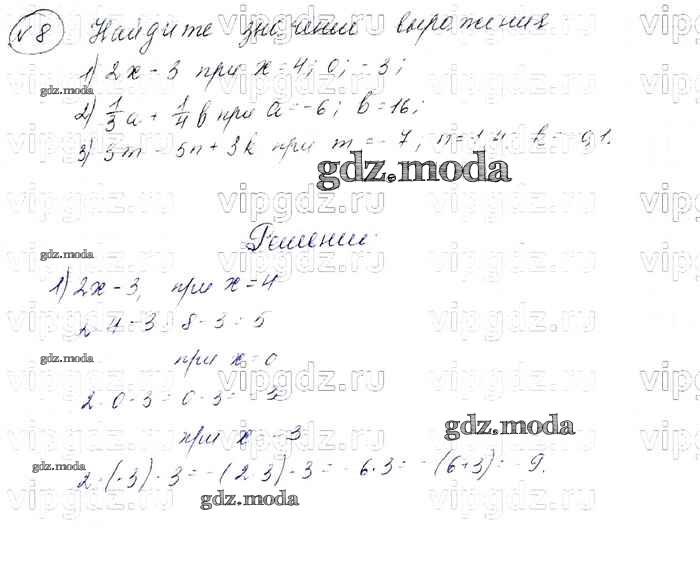 №8 Найдите значение выражения
1) 2x - 3 при x = 4; 0; -3;
gdz.moda
2) 1/3 a + 1/4 b при a = -6; b = 16;
3) 3m - 5n + 3k при m = -7, n = 1,4
gdz.moda
Решение
gdz.moda
1) 2x - 3, при x = 4
2·4 - 3 = 8 - 3 = 5
gdz.moda
при x = 0
2·0 - 3 = 0 - 3 = -3
gdz.moda
при x = -3
gdz.moda
2·(-3) - 3 = -(2·3) - 3 = -6-3 = -(6+3) = -9.
gdz.moda
vipgdz.ru